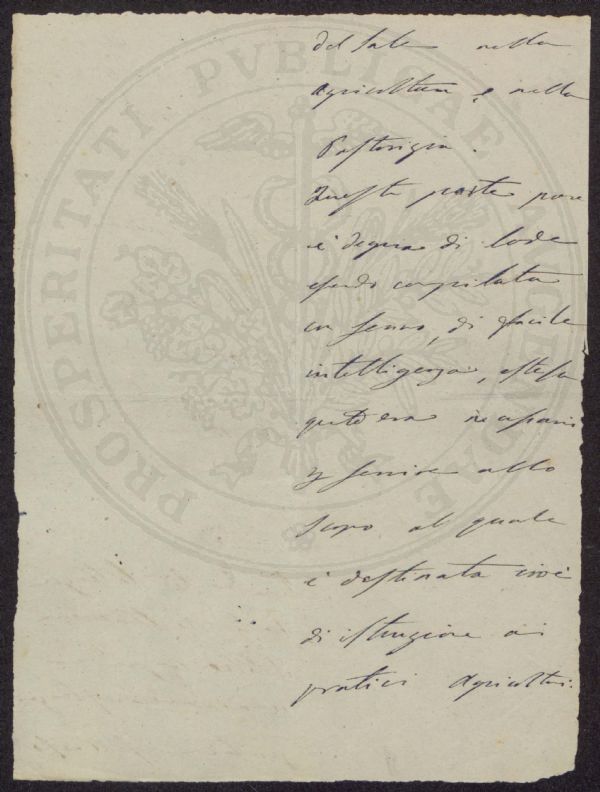 del sale nella
agricoltura, e nella
Pastorizia.
Questa parte pure
è degna di lode
essendo compilata
con senno, di facile
intelligenza, estesa
quanto era necessario
per servire allo
scopo al quale
è destinata cioè
di istruzione ai
pratici Agricoltori.
PROSPERITATI PVBLICAE AVGENDAE